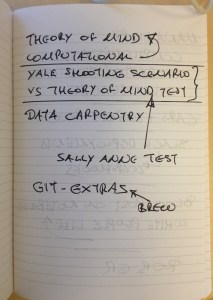 THEORY OF MIND
COMPUTATIONAL
YALE SHOOTING SCENARIO
VS THEORY OF MIND TEST
DATA CARPENTRY
SALLY ANNE TEST
GIT-EXTRAS
BREW